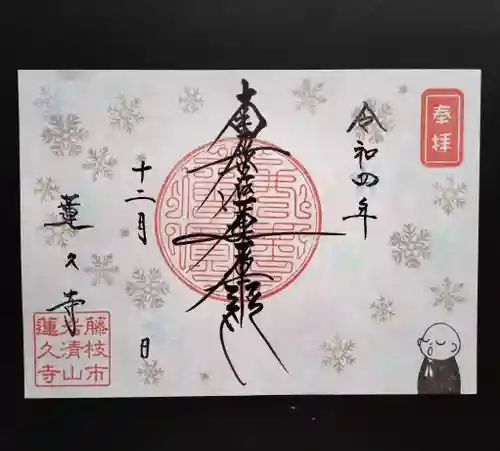 奉拝
令和四年
南無妙法蓮華経
十二月 日
蓮久寺
藤枝市
岩清山
蓮久寺